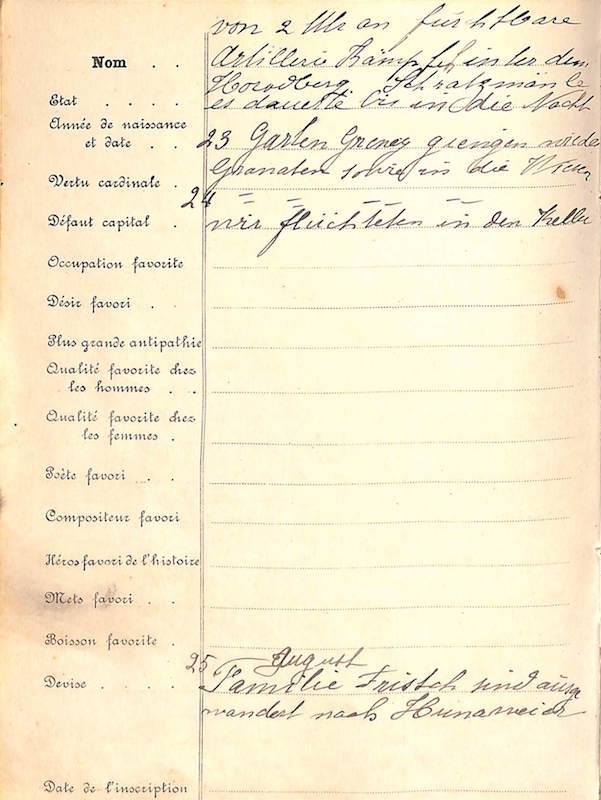 von 2 Uhr an furchtbare
Nom . . Artillerie Kämpf hinter dem
Horodberg Schratzmänle
Etat . . . . es dauerte bis in die Nacht
Année de naissance
et date . . 23 Garten Greney giengen wieder
Vertu cardinale . Granaten sowie in die
24 – – – – –
Défaut capital . wir flüchteten in den Keller
Occupation favorite
Désir favori . .
Plus grande antipathie
Qualité favorite chez
les hommes . .
Qualité favorite chez
les femmes .
Poète favori . .
Compositeur favori
Héros favori de l'histoire
Mets favori . .
Boisson favorite .
25 August
Devise . . . . Familie Fritsch sind ausge
wandert nach Hunaweier
Date de l'inscription